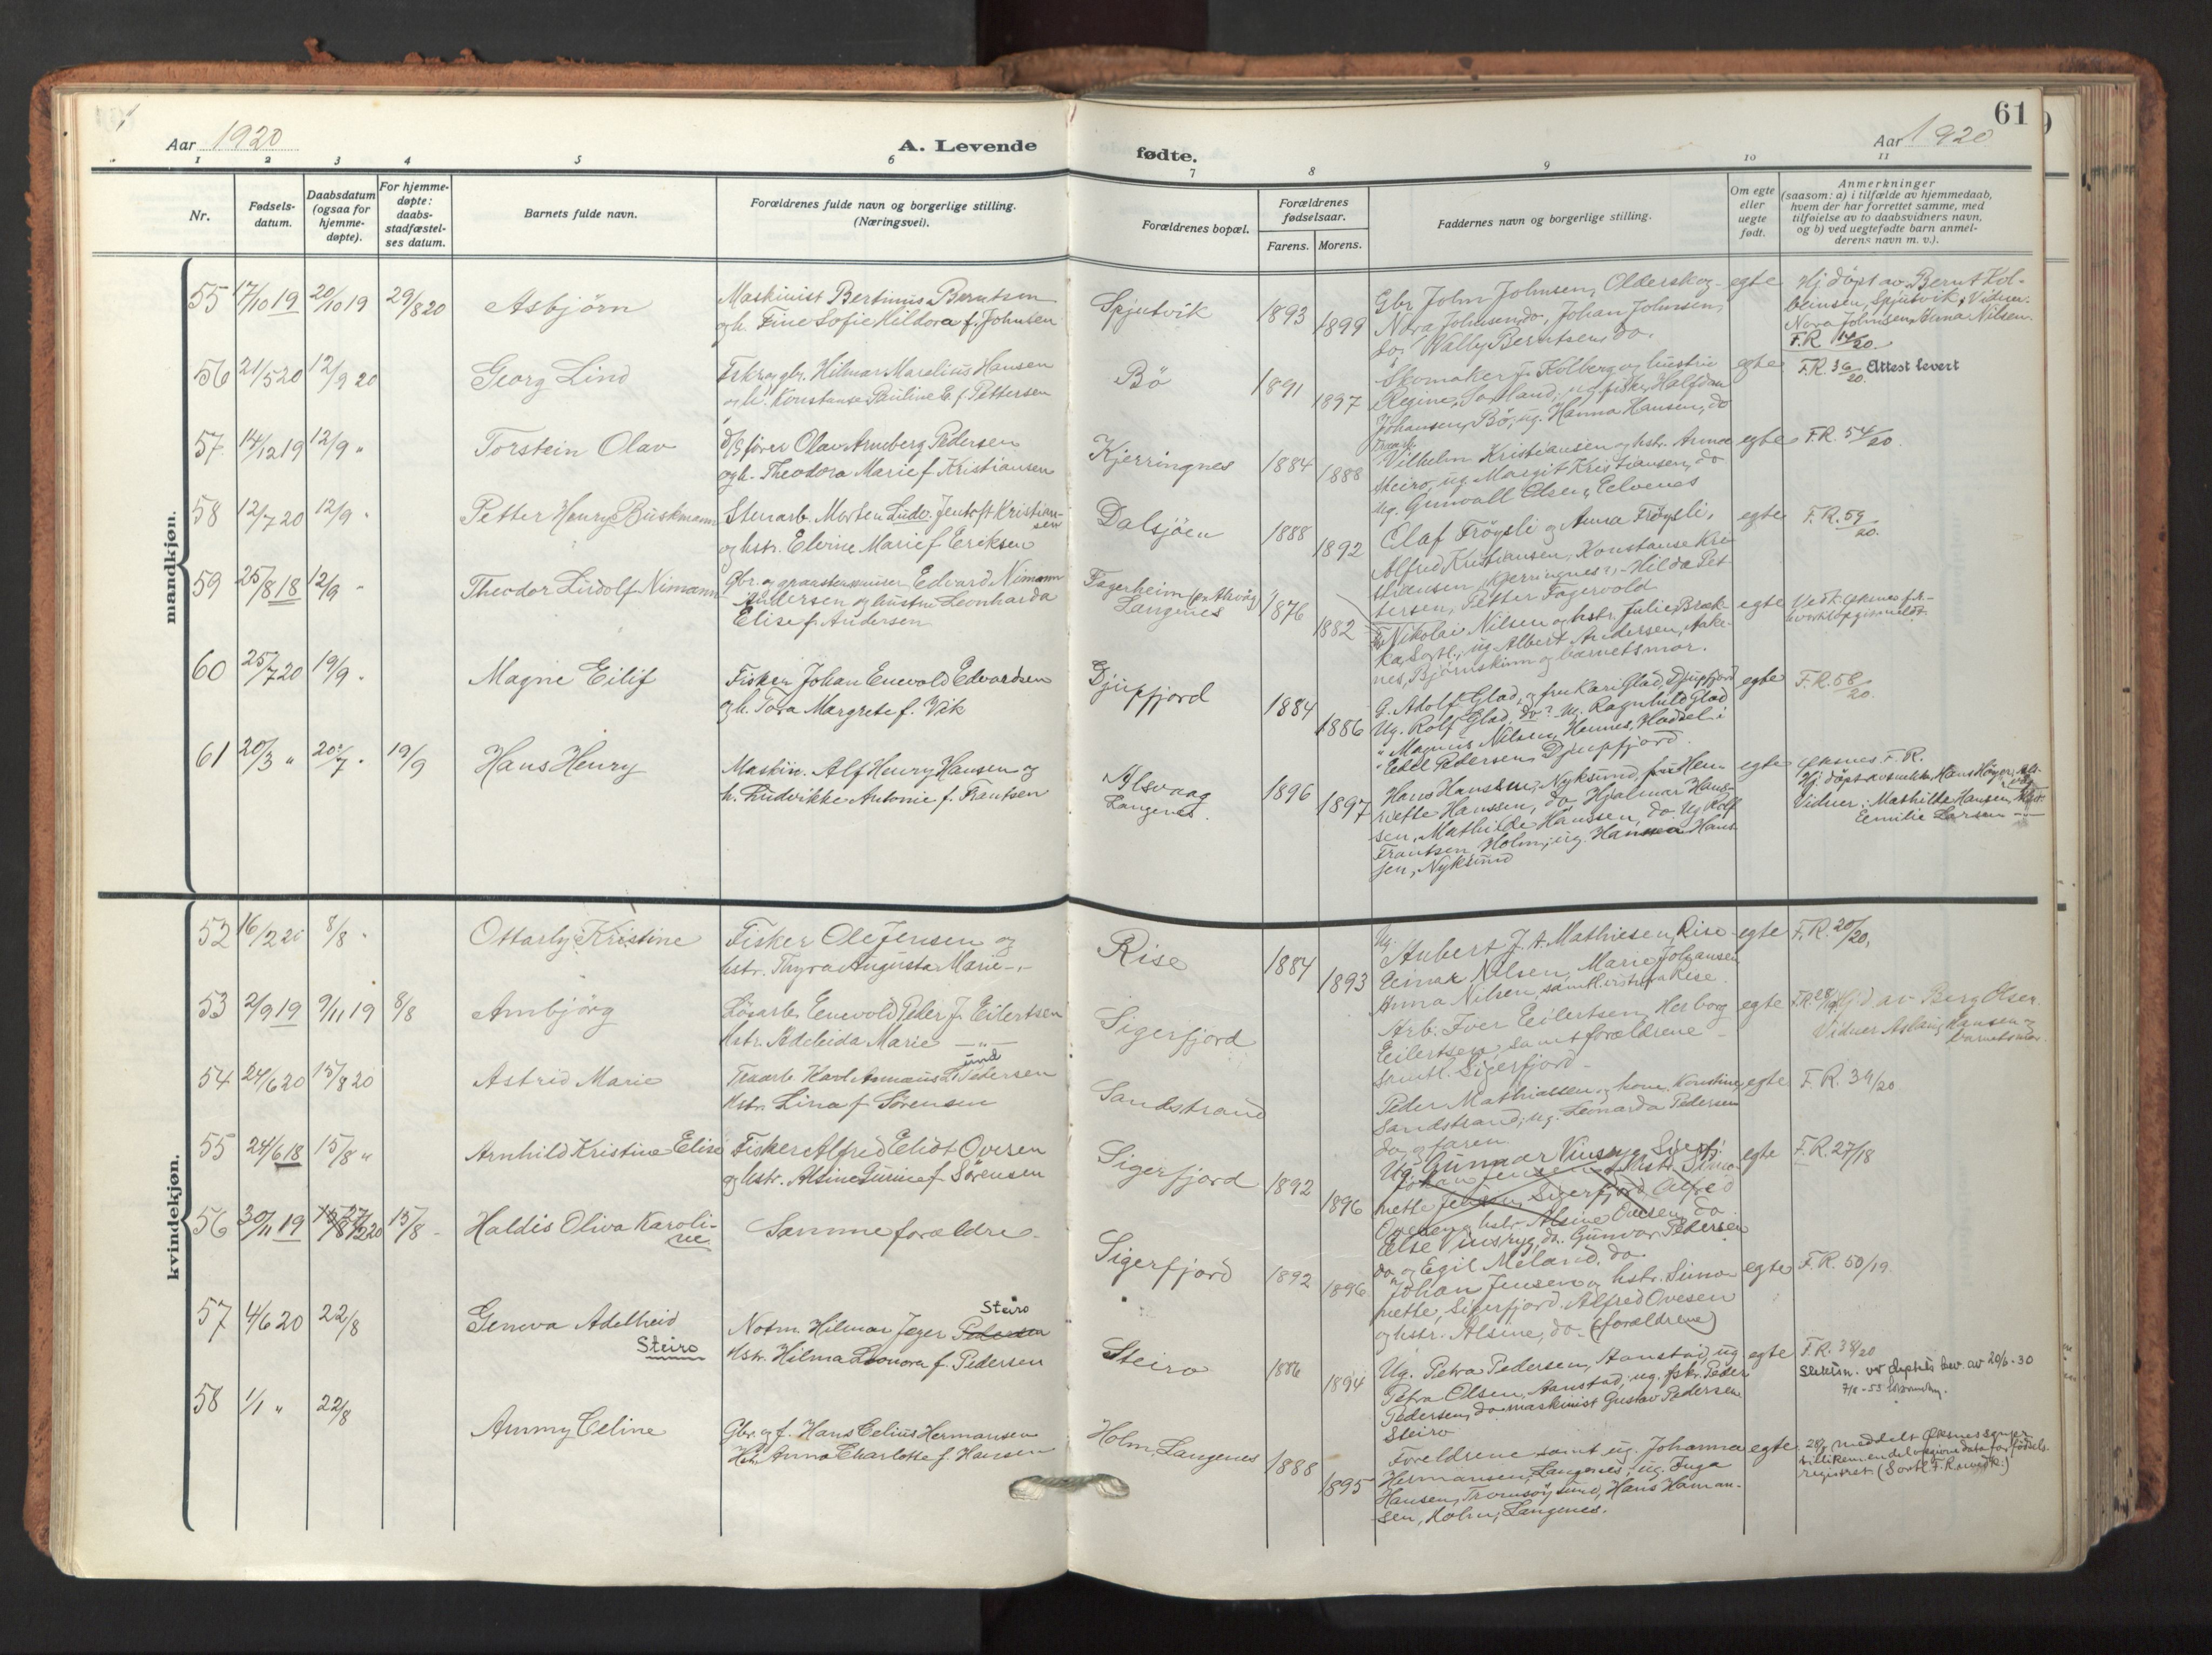 Aar 1920
A. Levende
fødte.
Aar 1920
61
1 2 3 4 5 6 7 8 9 10 11
Nr.
Fødsels-
datum.
Daabsdatum
(ogsaa for
hjemme-
døpte).
For hjemme-
døpte:
daabs-
stadfæstel-
ses datum.
Barnets fulde navn.
Forældrenes fulde navn og borgerlige stilling.
(Næringsvei).
Forældrenes bopæl.
Forældrenes
fødselsaar.
Farens. Morens.
Faddernes navn og borgerlige stilling.
Om egte
eller
uegte
født.
Anmerkninger
(saasom: a) i tilfælde av hjemmedaab,
hvem der har forrettet samme, med
tilføielse av to daabsvidners navn,
og b) ved uegtefødte barn anmel-
derens navn m. v.).
mandkjøn.
55 17/10 19 20/10 19 29/8 20 Asbjörn
Maskinist Bertinus Berntsen
og h. Line Sofie Hildora f. Johnsen
Spjutvik 1893 1899
Gbr John Johnsen, Olderskog
Nora Johnsen, do, Johan Johnsen,
do, Wally Berntsen, do.
egte
Hj döpt av Bernt Kol-
beinsen, Spjutvik, Vidner:
Nora Johnsen, Anna Nilsen.
F.R. 14/20.
56 21/5 20 12/9 20 Georg Lind
Fskr og gbr. Hilmar Marelius Hansen
og h. Konstanse Pauline E. f. Pettersen
Bö 1891 1897
Skomaker J. Kolberg og hustru
Regine, Sortland, ug. fisker Halfdan
Johansen, Bö, ug. Hanna Hansen, do
egte
F.R. 36/20. Attest levert
57 14/12 19 12/9 " Torstein Olav
D/S förer Olav Arneberg Pedersen
og h. Theodora Marie f. Kristiansen
Kjerringnes 1884 1888
Vilhelm Kristiansen og hstr. Anna
Steiro, ug Margit Kristiansen, do
Ug. Gunvall Olsen, Eelvenes
egte F.R. 54/20.
58 12/7 20 12/9 " Petter Henry Buskmann
Stenarb. Morten Ludv. Jentoft Kristian-
sen
og hstr. Elerine Marie f. Eriksen
Dalsjöen 1888 1892
Olaf Fröysli og Anna Fröysli,
Alfred Kristiansen, Konstanse Kri-
stiansen, Kjerringnes, Hilda Pet-
tersen, Petter Fagervold
egte F.R. 59/20.
59 25/8 18 12/9 " Theodor Ludolf Nimann
Gbr. og Edvard Nimann
Andersen og hustru Leonharda
Elise f. Andersen
Fagerheim
Langenes
1876 1882
Nikolai Nilsen og hstr. Julie, Bræk-
ka, Sortl., ug. Albert Andersen, Aake-
nes, Bjørnskinn og barnets mor.
egte
60 25/7 20 19/9 " Magne Eilif
Fisker Johan Enevold Edvardsen
og h. Tora Margrete f. Vik
Djupfjord 1884 1886
G. Adolf Glad, og fru Kari Glad, Djupfjord
Ug. Rolf Glad, do, ug. Ragnhild Glad
" Magnus Nilsen, Hennes, Hadsel i
" Edel Pedersen, Djupfjord.
egte F.R. 58/20.
61 20/3 " 20/7 " 19/9 Hans Henry
Maskin. Alf Henry Hansen og
h. Ludvikke Antonie f. Frantsen
Alsvaag
Langenes.
1896 1897
Hans Hanssen, Nyksund, fru Hen-
riette Hanssen, do, Hjalmar Hans-
sen, Mathilde Hanssen, do. Ug Rolf
Frantsen, Holm, ug. Hanna Hans-
sen, Nyksund
egte
Øksnes. F.R.
Vidner: Mathilde Hansen,
Emilie Larsen
kvindekjøn.
52 16/2 20 8/8 " Ottarly Kristine
Fisker Ole Jensen og
hstr. Thyra Augusta Marie -"-
Rise 1884 1893
Ug.
Aubert J. A. Mathiesen, Rise
Einar Nilsen, Marie Johansen
Anna Nilsen, samtl. Rise.
egte F.R. 20/20.
53 2/9 19 9/11 19 8/8 Arnbjörg
Lösarb. Enevold Peder J. Eilertsen
Hstr. Adeleida Marie -"-
Sigerfjord
Arb. Iver Eilertsen, Herborg
Eilertsen, samt forældrene
samtl. Sigerfjord.
egte
F.R. Hjd av Berg Olsen.
Vidner Aslaug Hansen og
barnets mor.
54 24/6 20 15/8 20 Astrid Marie
und
Karl Annæus L. Pedersen
Hstr. Lina f. Sörensen
Sandstrand
Peder Mathiassen, og kone Konstine
Sandstrand, ug. Leonarda Pedersen
do, og faren
egte F.R. 34/20
55 24/6 18 15/8 " Arnhild Kristine Elise
Fisker Alfred Eliot Ovesen
og hstr. Alsine Gurine f. Sörensen
Sigerfjord 1892 1896
Ug. Gunnar Vinsryg, Sigerfj.
Johan Jensen og hstr. Simo-
nette Jensen, Sigerfjord Alfred
Ovesen og hstr. Alsine Ovesen, do
Else Vinsryg, do. Gunvor Pedersen
do, og Egil Meland, do.
egte F.R. 27/18
56 30/11 19 15/8 - Haldis Oliva Karoli-
ne
Samme forældre.
Sigerfjord 1892 1896.
Johan Jensen og hstr. Simo-
nette, Sigerfjord. Alfred Ovesen
og hstr. Alsine, do. (forældrene)
egte F.R. 50/19.
57 4/6 20 22/8 Geneva Adelheid
Steiro
Steiro
Notm. Hilmar Jeger Pedersen
Hstr. Hilma Leonora f. Pedersen
Steiro 1886 1894
Ug. Petra Pedersen, Aanstad, ug
Petra Olsen, Aanstad, ug. fskr. Peder
Pedersen, do maskinist Gustav Pedersen
Steiro
egte F.R. 38/20
Slektsn. ved bev. av 20/6-30
58 1/1 " 22/8 Ammy Celine
Gbr. og f. Hans Celius Hermansen
Hstr. Anna Charlotte f. Hansen
Holm, Langenes 1888 1895
Foreldrene samt ug. Johanna
Hermansen, Langenes, ug. Inga
Hansen, Tromsöysund, Hans Haman-
sen, Holm, Langenes.
egte
meddelt Øksnes
registret. (Sortl. F.R. )